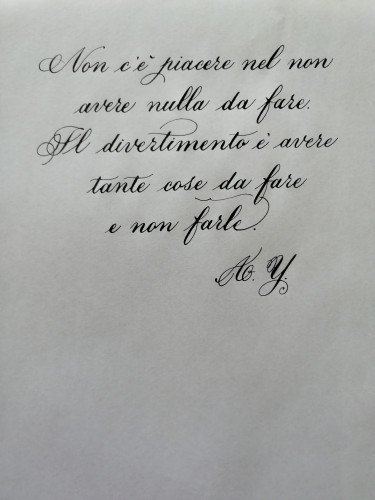 Non c'è piacere nel non
avere nulla da fare.
Il divertimento è avere
tante cose da fare
e non farle.
Y.